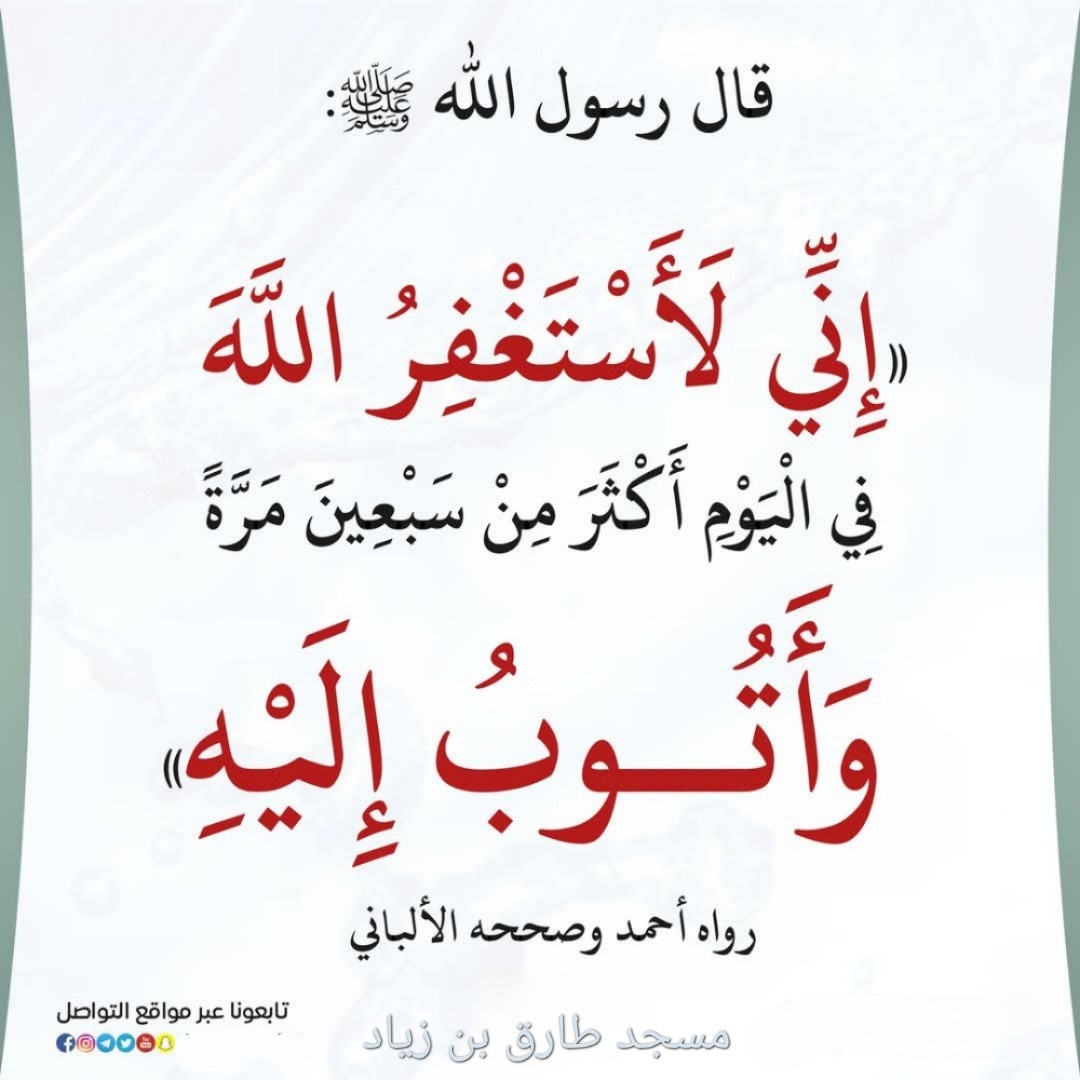 قال رسول الله ﷺ:
«إِنِّي لَأَسْتَغْفِرُ اللَّهَ
فِي الْيَوْمِ أَكْثَرَ مِنْ سَبْعِينَ مَرَّةً
وَأَتُــوبُ إِلَيْهِ»
رواه أحمد وصححه الألباني
تابعونا عبر مواقع التواصل
مسجد طارق بن زياد